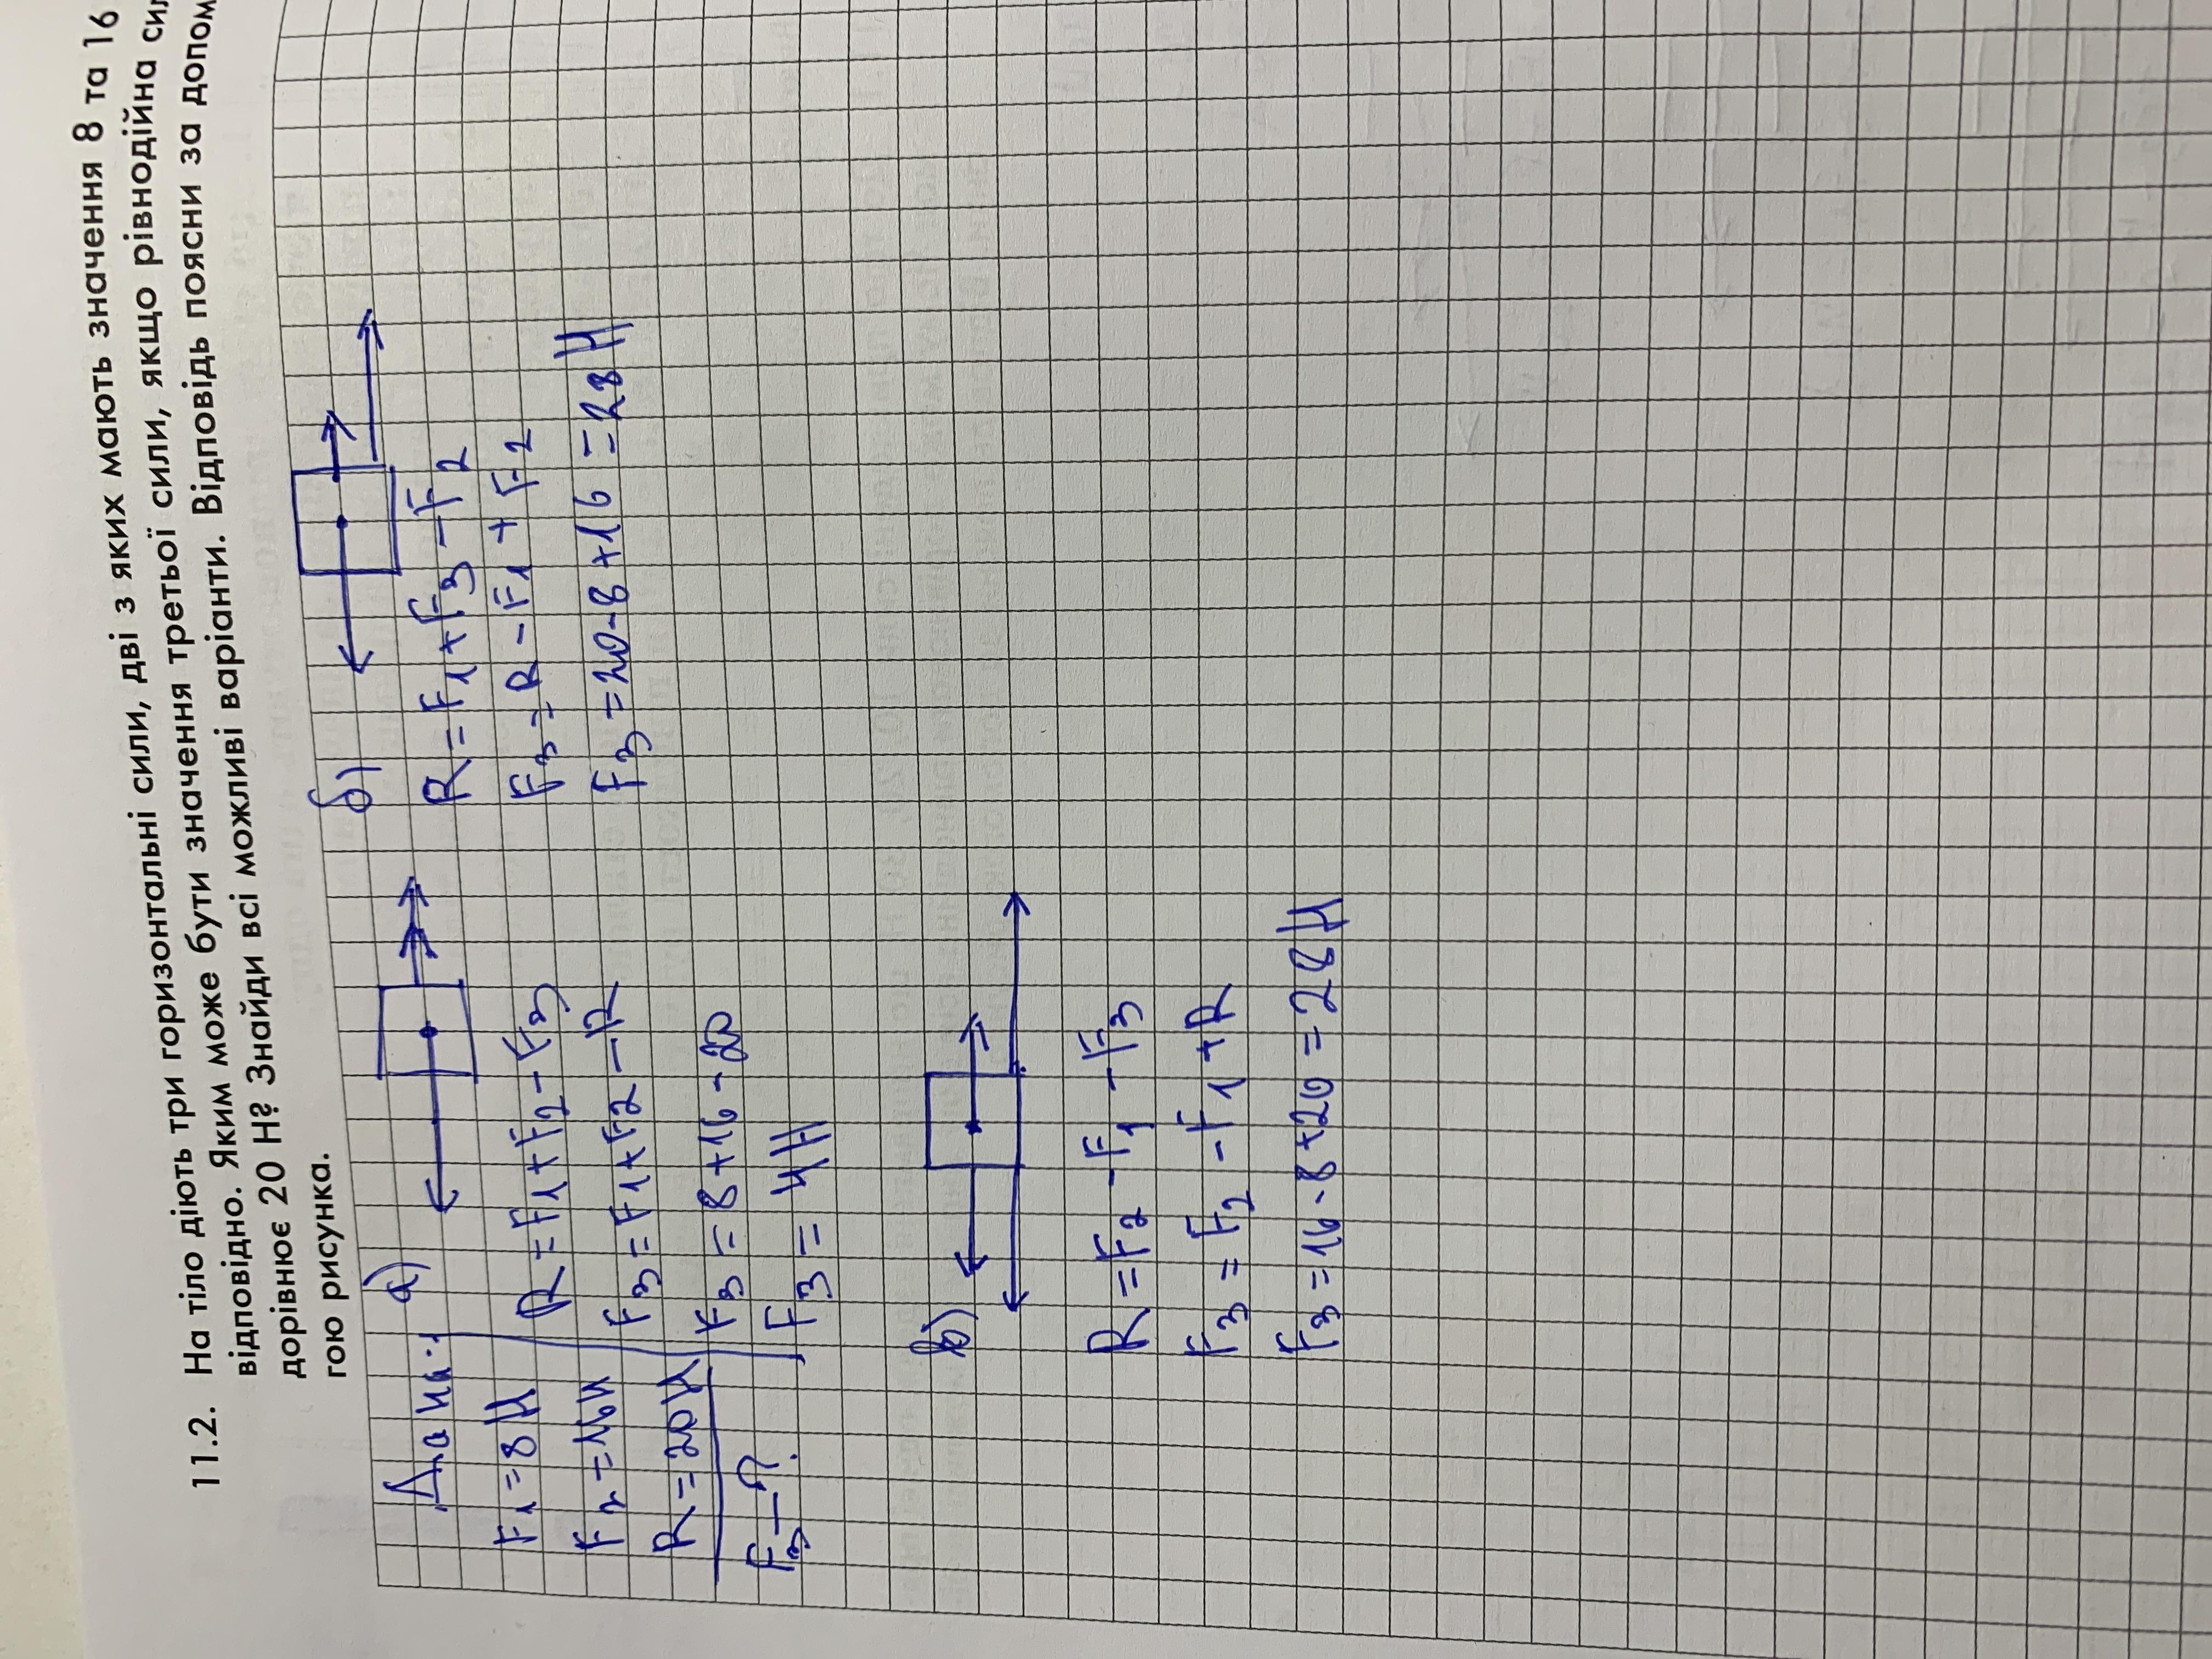 11.2. На тіло діють три горизонтальні сили, дві з яких мають значення 8 та 16
відповідно. Яким може бути значення третьої сили, якщо рівнодійна
дорівнює 20 Н? Знайди всі можливі варіанти. Відповідь поясни за допом
гою рисунка.
а)
R=F1+F2-F3
F3=F1+F2-R
F3=8+16-20
F3=4H
б)
R=F1+F3-F2
F3=R-F1+F2
F3=20-8+16=28H
F1=8H
F2=16H
R=20H
F3-?
в)
R=F2-F1-F3
F3=F2-F1+R
F3=16-8+20=28H